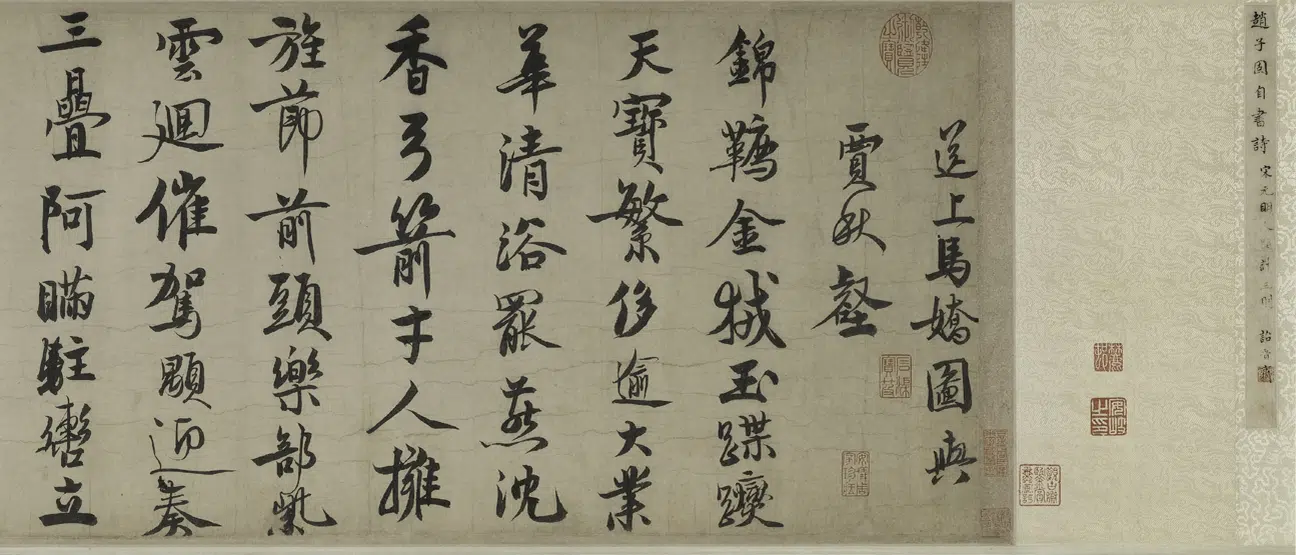 趙子固自書詩 宋元明人
送上馬嬌圖與
賈秋壑
錦韉金𩎟玉蹀躞
天寶繁侈逾大業
華清浴罷燕沈
香弓箭才人擁
旌節前頭樂部
雲迴催駕顯迎奏
三疊阿瞞駐轡立